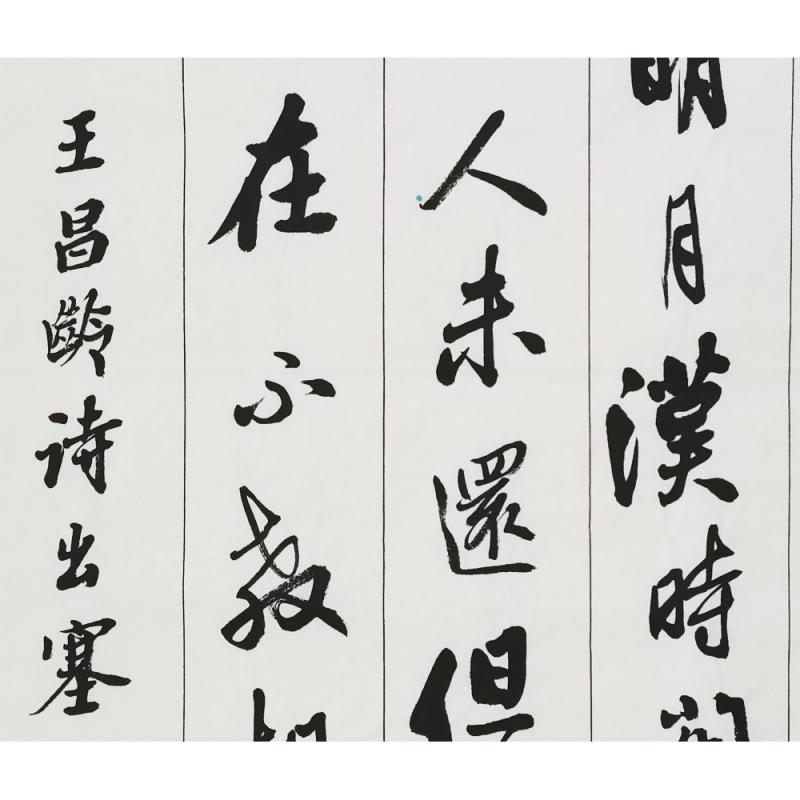 明月漢時
人未還但
在不教
王昌齡诗出塞